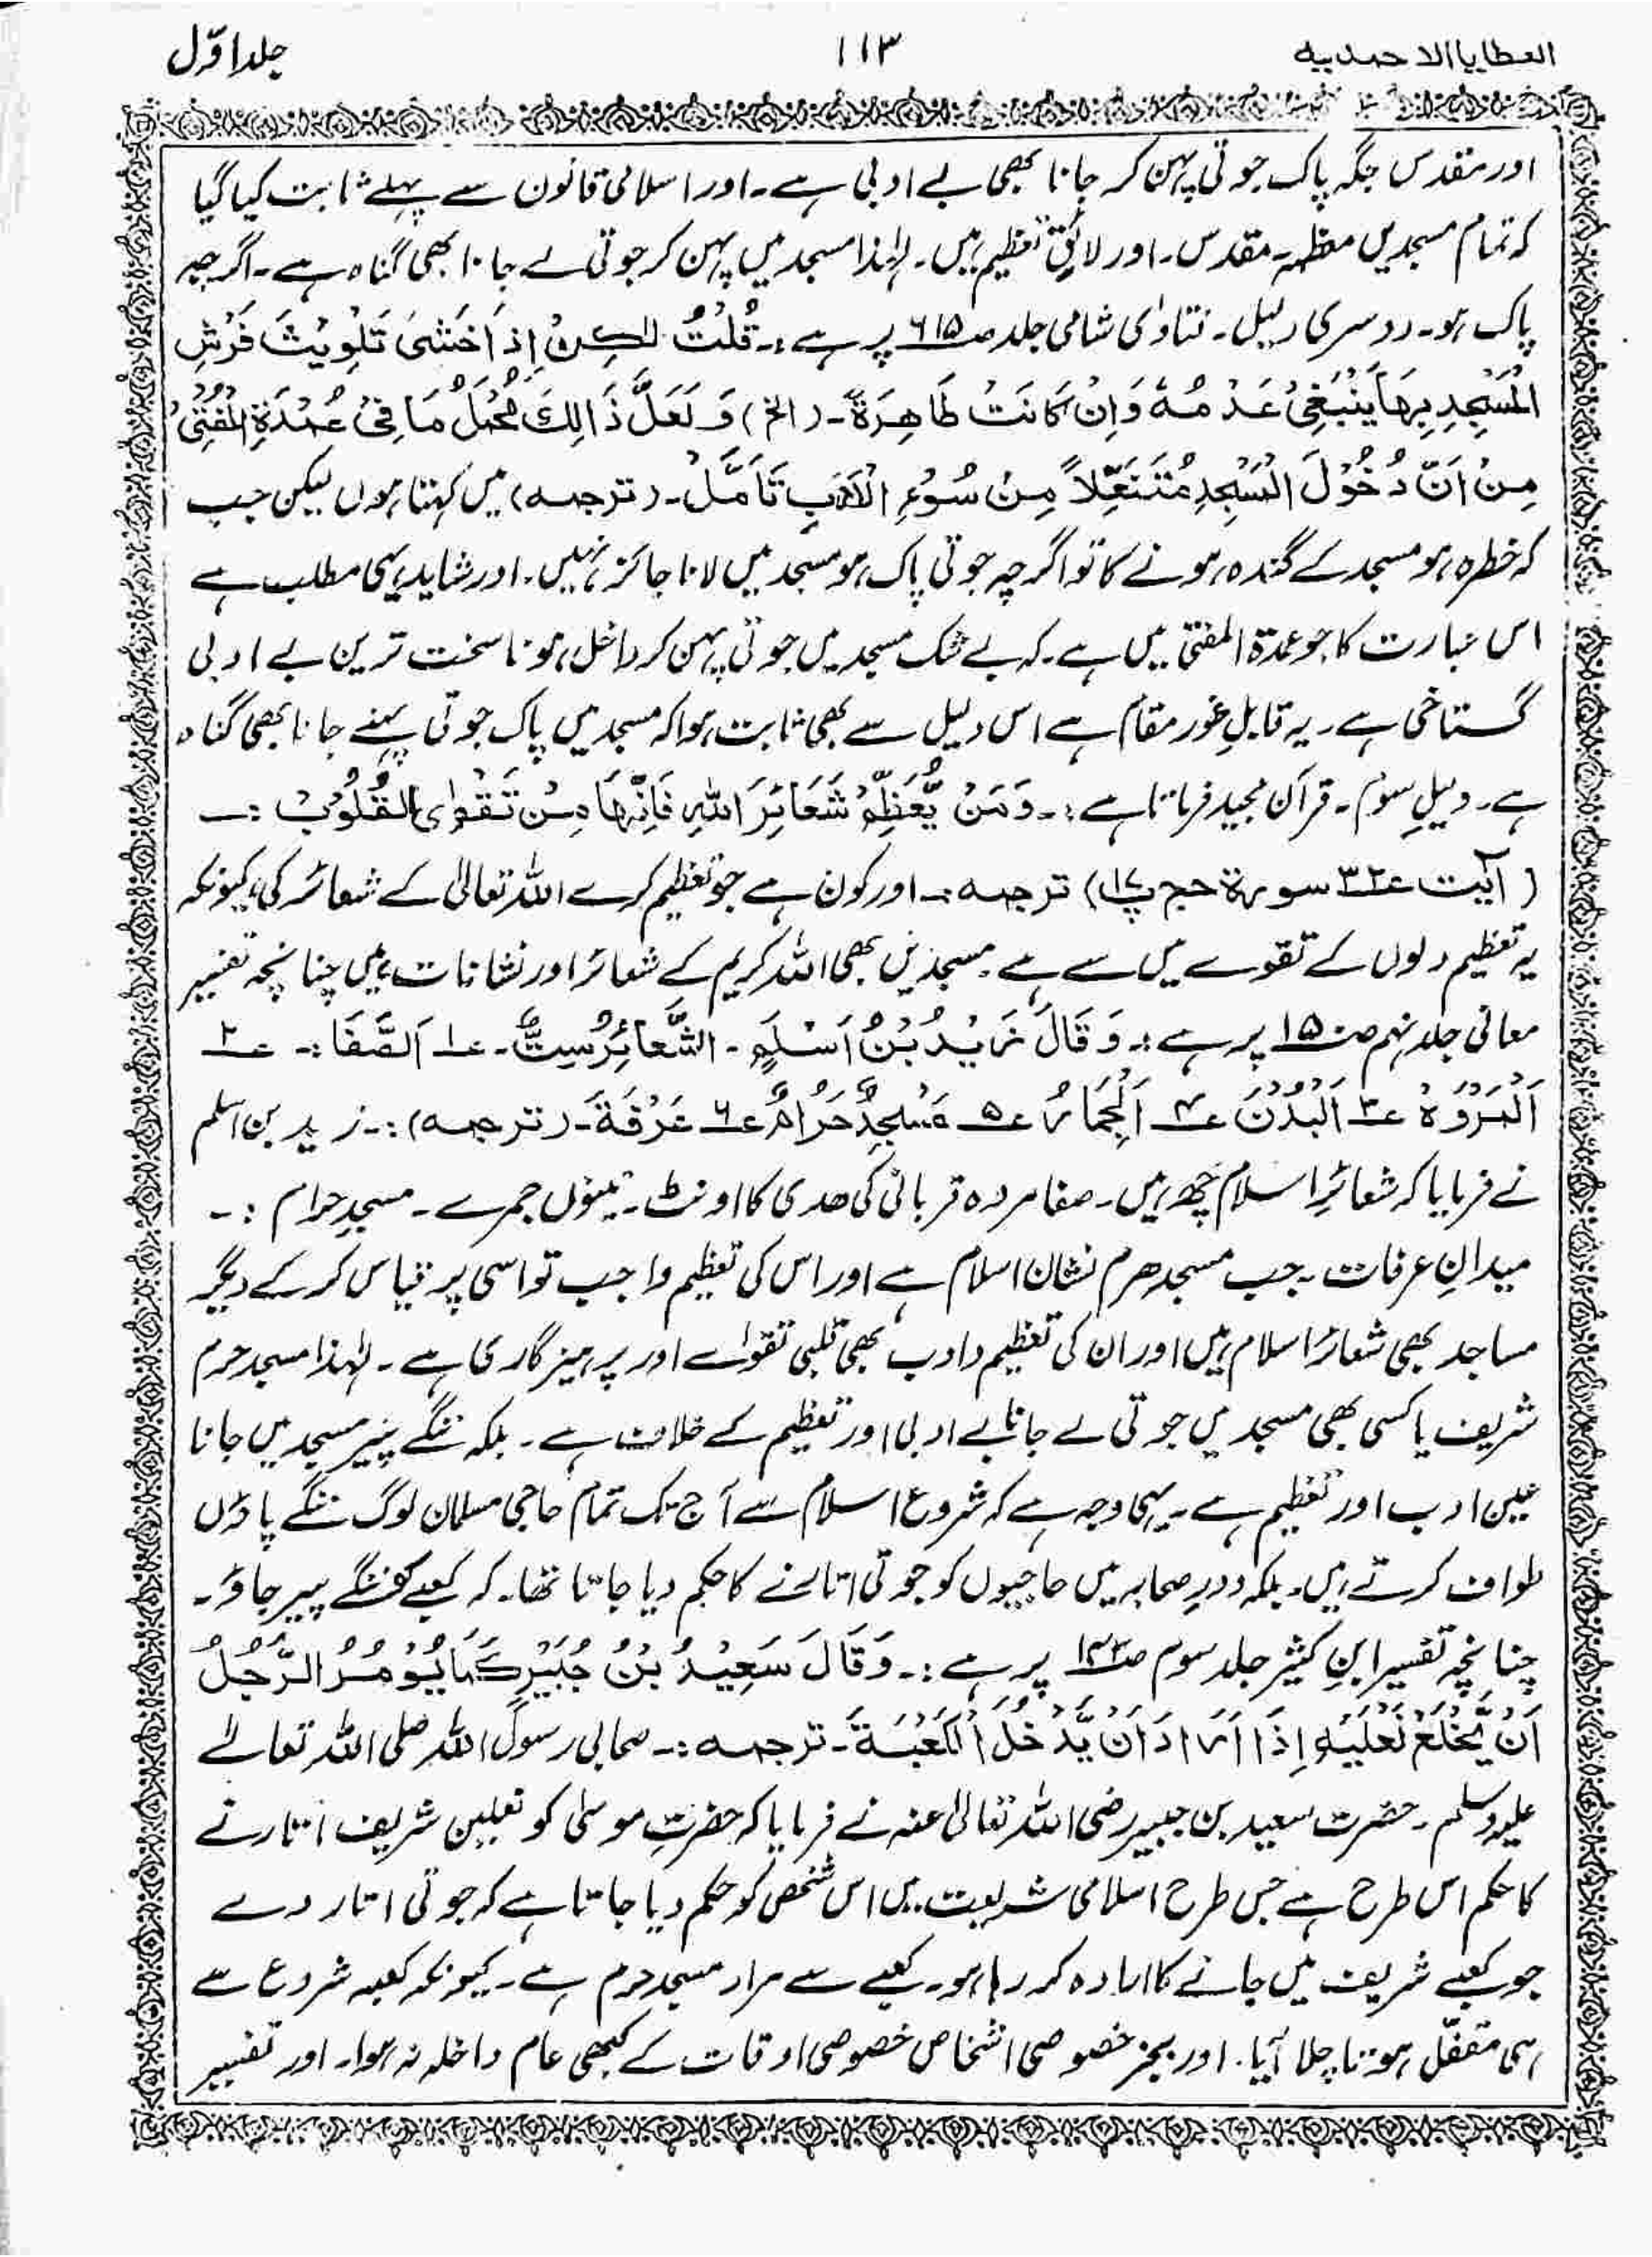 العطایا الاحمدیہ ۱۱۳ جلد اوّل
اور مقدس جگہ پاک جوتی پہن کر جانا بھی بے ادبی ہے۔ اور اسلامی قانون سے پہلے ثابت کیا گیا
کہ تمام مسجدیں معظم۔ مقدس۔ اور لائقِ تعظیم ہیں۔ لہٰذا مسجد میں پہن کر جوتی لے جانا بھی گناہ ہے۔ اگرچہ
پاک ہو۔ دوسری دلیل۔ فتاوٰی شامی جلد صـ ۶۱۵ پر ہے :۔ قُلْتُ لٰكِنْ اِذَا خَشٰىَ تَلْوِيْثَ فَرْشِ
الْمَسْجِدِ بِهَا يَنْبَغِىْ عَدْمُهٗ وَاِنْ كَانَتْ طَاهِرَةً۔ (الخ) وَلَعَلَّ ذَالِكَ مَحْمَلُ مَا فِىْ عُمْدَةِ الْمُفْتِىْ
مِنْ اَنَّ دُخُوْلَ الْمَسْجِدِ مُتَنَعِّلاً مِنْ سُوْءِ الْاَدَبِ تَاَمَّلْ۔ (ترجمہ) میں کہتا ہوں لیکن جب
کہ خطرہ ہو مسجد کے گندہ ہونے کا تو اگرچہ جوتی پاک ہو مسجد میں لانا جائز نہیں۔ اور شاید یہی مطلب ہے
اس عبارت کا جو عمدۃ المفتی میں ہے۔ کہ بے شک مسجد میں جوتی پہن کر داخل ہونا سخت ترین بے ادبی
گستاخی ہے۔ یہ قابلِ غور مقام ہے اس دلیل سے بھی ثابت ہوا کہ مسجد میں پاک جوتی پہنے جانا بھی گناہ
ہے۔ دلیلِ سوم۔ قرآن مجید فرماتا ہے :۔ وَمَنْ يُّعَظِّمْ شَعَائِرَ اللّٰهِ فَاِنَّهَا مِنْ تَقْوٰى الْقُلُوْبْ :۔
(آیت ۳۲ سورۃ حج پ۱۷) ترجمہ :۔ اور کون ہے جو تعظیم کرے اللہ تعالیٰ کے شعائر کی، کیونکہ
یہ تعظیم دلوں کے تقوے میں سے ہے۔ مسجدیں بھی اللہ کریم کے شعائر اور نشانات ہیں چنانچہ تفسیر
معانی جلد نہم صـ ۱۵ پر ہے :۔ وَقَالَ زَيْدُ بْنُ اَسْلَمِ۔ الشَّعَائِرُ سِتٌّ۔ ۱ اَلصَّفَا :۔ ۲
اَلْمَرْوَهْ ۳ اَلْبُدْنَ ۴ اَلْجِمَارُ ۵ مَسْجِدٌ حَرَامٌ ۶ عَرْفَةَ۔ (ترجمہ) :۔ زید بن اسلم
نے فرمایا کہ شعائرِ اسلام چھ ہیں۔ صفا مروہ قربانی کی ھدی کا اونٹ۔ تینوں جمرے۔ مسجدِ حرام :۔
میدانِ عرفات۔ جب مسجد حرم نشان اسلام ہے اور اس کی تعظیم واجب تو اسی پر قیاس کر کے دیگر
مساجد بھی شعائر اسلام ہیں اور ان کی تعظیم و ادب بھی قلبی تقواے اور پرہیزگاری ہے۔ لہٰذا مسجد حرم
شریف یا کسی بھی مسجد میں جوتی لے جانا بے ادبی اور تعظیم کے خلاف ہے۔ بلکہ ننگے پیر مسجد میں جانا
عین ادب اور تعظیم ہے۔ یہی وجہ ہے کہ شروع اسلام سے آج تک تمام حاجی مسلمان لوگ ننگے پاؤں
طواف کرتے ہیں۔ بلکہ دورِ صحابہ میں حاجیوں کو جوتی اتارنے کا حکم دیا جاتا تھا۔ کہ کعبے کو ننگے پیر جاؤ۔
چنانچہ تفسیر ابنِ کثیر جلد سوم صـ ۱۴۳ پر ہے :۔ وَقَالَ سَعِيْدُ بْنُ جُبَيْرٍ كَمَا يُوْمَرُ الرَّجُلُ
اَنْ يَّخْلَعَ نَعْلَيْهِ اِذَا اَرَادَ اَنْ يَّدْخُلَ الْكَعْبَةَ۔ ترجمہ :۔ صحابی رسول اللہ صلی اللہ تعالےٰ
علیہ وسلم۔ حضرت سعید بن جبیر رضی اللہ تعالیٰ عنہ نے فرمایا کہ حضرتِ موسیٰ کو نعلین شریف اتارنے
کا حکم اس طرح ہے جس طرح اسلامی شریعت میں اس شخص کو حکم دیا جاتا ہے کہ جوتی اتار دے
جو کعبے شریف میں جانے کا ارادہ کر رہا ہو۔ کعبے سے مراد مسجد حرم ہے۔ کیونکہ کعبہ شروع سے
ہی مقفّل ہوتا چلا آیا۔ اور بجز خصوصی اشخاص خصوصی اوقات کے کبھی عام داخلہ نہ ہوا۔ اور تفسیر